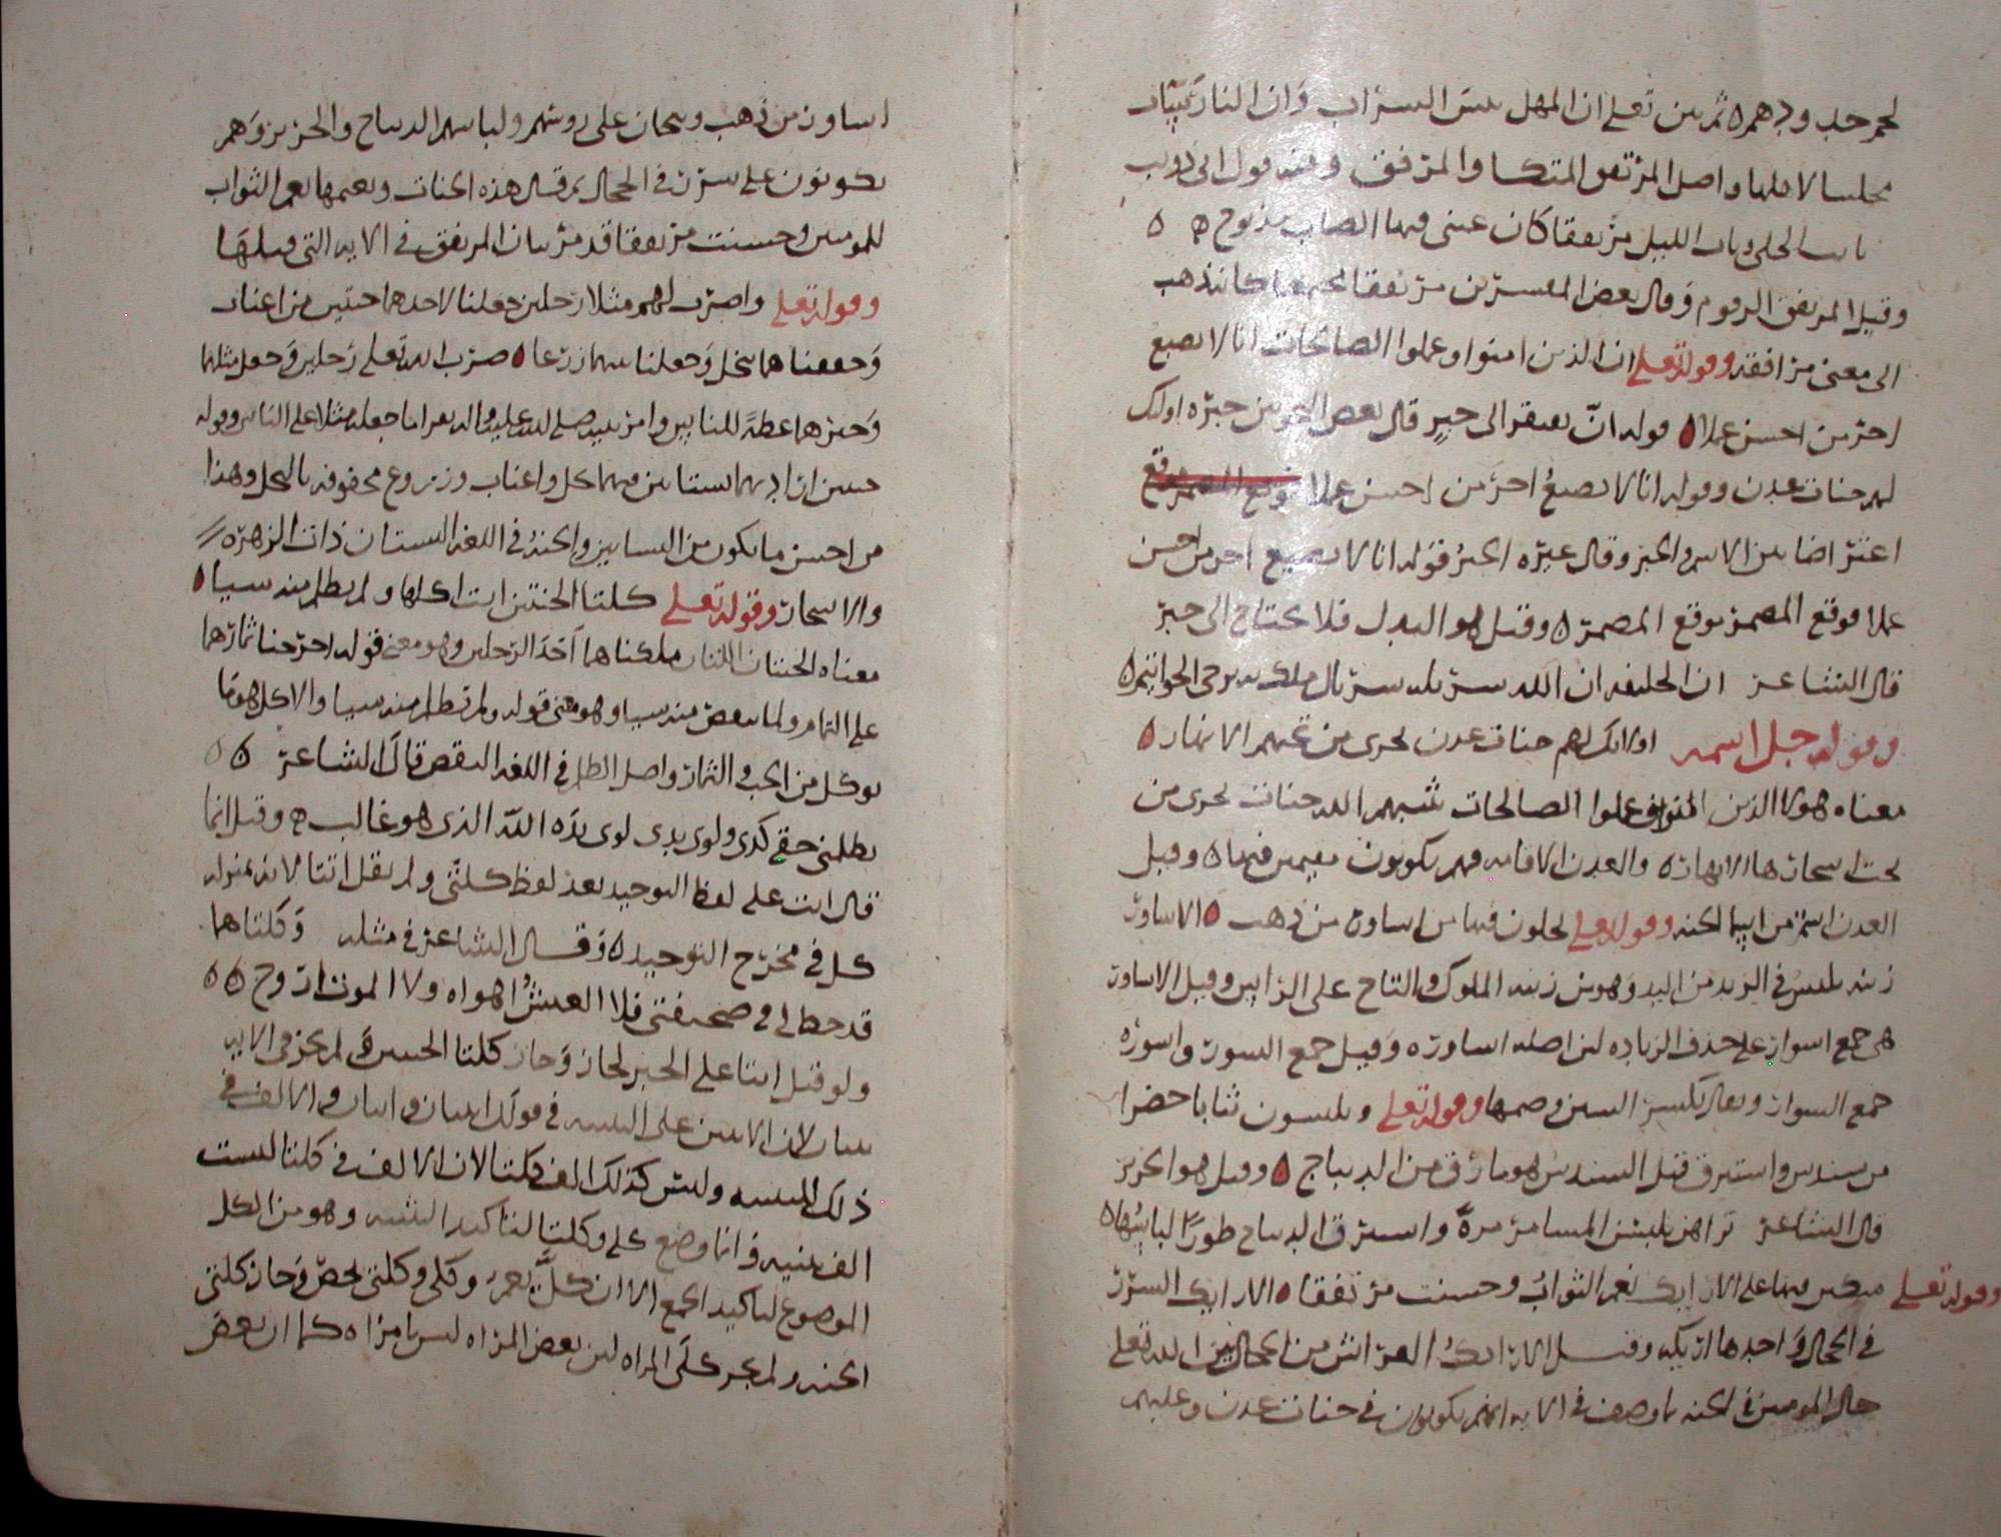 لحم خدودهم ثم بين تعلى ان المهل بيس الشراب وان النار بيئات
مجلسا لاهلها واصل المرتفق المتكا والمرفق ومنه قول ابي ذويب
نام الخلي وبات الليل مرتفقا كان عيني فيها الصاب مذبوح
وقيل المرتفق الرفوم وقال بعض المفسرين مرتفقا مجتمعا كانه ذهب
الى معنى مرافقه وقوله تعلى ان الذين امنوا وعملوا الصالحات انا لا نضيع
اجر من احسن عملا قوله ان يفتقر الى خبر قال بعض النحويين خبره اوليك
لهم جنات عدن وقوله انا لا نضيع اجر من احسن عملا
اعتراضا بين الاسم والخبر وقال غيره الخبر قوله انا لا نضيع اجر من احسن
عملا فوقع المضمر موقع المضمر وقيل هو البدل فلا يحتاج الى خبر
قال الشاعر ان الخليفه ان الله سربله سربال ملك به ترجى الخواتيم
وقوله جل اسمه اولائك لهم جنات عدن تجرى من تحتهم الانهار
معناه هولا الذين امنوا وعملوا الصالحات يثيبهم الله جنات تجرى من
تحت اشجارها الانهار والعدن الاقامه فهم يكونون مقيمين فيها وقيل
العدن اسم من اسما الجنه وقوله تعلى يحلون فيها من اساور من ذهب الاساور
زينه تلبس في الزند من اليد وهو من زينه الملوك والتاج على الراس وقيل الاساور
هي جمع اسوار على حذف الزياده لان اصله اساوره وقيل جمع السور واسوره
جمع السوار ويقال بكسر السين وضمها وقوله تعلى ويلبسون ثيابا خضرا
من سندس واستبرق قيل السندس هو ما رق من الديباج وقيل هو الحرير
قال الشاعر تراهن يلبسن المشاعر مرة واستبرق الديباج طورا لباسها
وقوله تعلى متكين فيها على الارايك نعم الثواب وحسنت مرتفقا الارايك السرر
في الحجال واحدها اريكه وقيل الارايك الفراش من الحجال بين الله تعلى
حال المومنين في الجنه بما وصف في الايه انهم يكونون في جنات عدن وعليهم
اساور من ذهب وتيجان على روسهم ولباسهم الديباج والحرير وهم
يكونون على سرر في الحجال ثم قال هذه الجنات ونعيمها نعم الثواب
للمومنين وحسنت مرتفقا قد مر بيان المرتفق في الايه التي قبلها
وقوله تعلى واضرب لهم مثلا رجلين جعلنا لاحدهما جنتين من اعناب
وحففناهما بنخل وجعلنا بينهما زرعا ضرب الله تعلى رجلين وجعل مثلهما
وخبرهما عظة للناس وامر نبيه صلى الله عليه واله بضر اما جعله مثلا على الناس وقوله
جنتين اراد بهما بستانين فيهما نخل واعناب وزروع محفوفه بالنخل وهذا
من احسن ما يكون من البساتين والجنة في اللغه البستان ذات الزهره
والاشجار وقوله تعلى كلتا الجنتين اتت اكلها ولم تظلم منه شيا
معناه الجنتان اللتان ملكناهما احد الرجلين وهو معنى قوله اخرجنا ثمارهما
على التمام ولما ينقص منه شيا وهو معنى قوله ولم تظلم منه شيا والاكل هو ما
يوكل من الحب والثمار واصل الظلم في اللغه النقص قال الشاعر
يظلمني حقي كذى ولوى يدى لوى يده الله الذى هو غالب وقيل انما
قال اتت على لفظ التوحيد بعد لفظ كلتي ولم يقل اتتا لانه بمنزله
كل في مخرج التوحيد وقال الشاعر في مثله وكلتاهما
قد خط لي في صحيفتي فلا العيش اهواه ولا الموت اروح
ولو قيل اتتا على الخبر لجاز وجاز كلتا الجنتين لم يجز في الايه
لان الالف في كلتا ليست
الف تثنيه وانما وضع كلى وكلتا لتاكيد التثنيه وهو من الكل
الموضوع لتاكيد الجمع الا ان كل يعم وكلى وكلتي يخص وجاز كلتي
الجنه ولم يجز كلى المراه لان بعض المراه ليس بامراه كما ان بعض